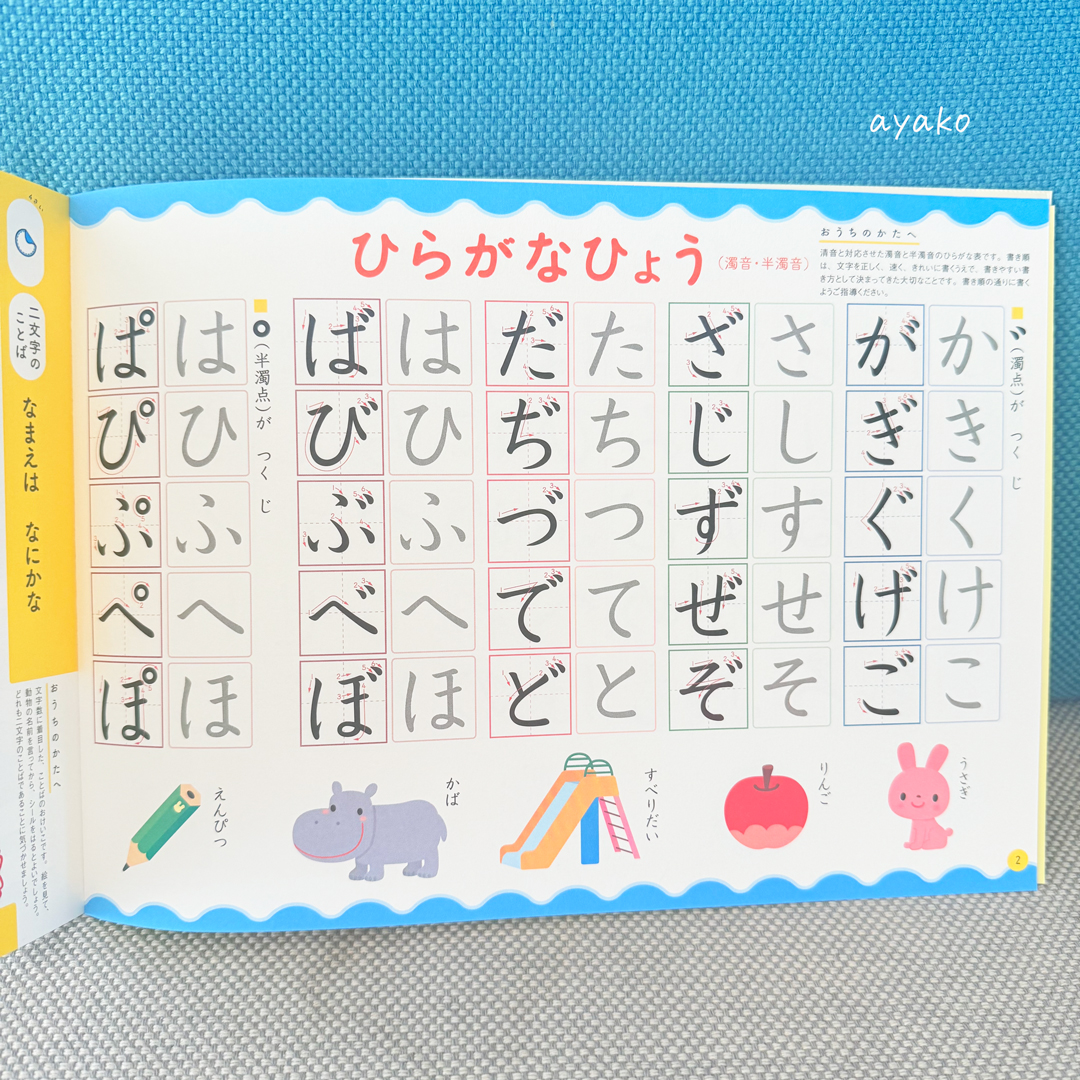 ayako
ひらがなひょう(濁音・半濁音)
おうちのかたへ
清音と対応させた濁音と半濁音のひらがな表です。書き順
は、文字を正しく、速く、きれいに書くうえで、書きやすい書
き方として決まってきた大切なことです。書き順の通りに書く
ようご指導ください。
゛(濁点)が つくじ
か が
き ぎ
く ぐ
け げ
こ ご
さ ざ
し じ
す ず
せ ぜ
そ ぞ
た だ
ち ぢ
つ づ
て で
と ど
は ば
ひ び
ふ ぶ
へ べ
ほ ぼ
゜(半濁点)が つくじ
は ぱ
ひ ぴ
ふ ぷ
へ ぺ
ほ ぽ
うさぎ
りんご
すべりだい
かば
えんぴつ
2
二文字の
ことば
なまえは なにかな
おうちのかたへ
文字数に着目した、ことばのおけいこです。絵を見て、
動物の名前を言ってから、シールをはるとよいでしょう。
どれも二文字のことばであることに気づかせましょう。